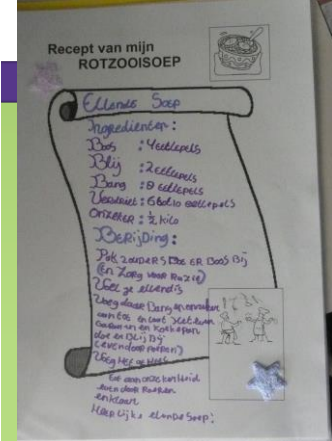 Recept van mijn
ROTZOOISOEP
Ellende Soep
Ingredienten:
Boos : 4 eetlepels
Blij : 2 eetlepels
Bang : 8 eetlepels
Verdriet : 6 eetlepels
Onzeker : ½ kilo
BERijDing:
Pak ouders doe ER Boos Bij
(En Zorg voor Ruzie)
Voel je ellendig
Voeg daar Bang en
aan toe en laat
in en
doe en BLij Bij
(even door roeren)
Voeg
toe aan onzekerheid
even door Roeren
en klaar
Heerlijke ellende Soep!